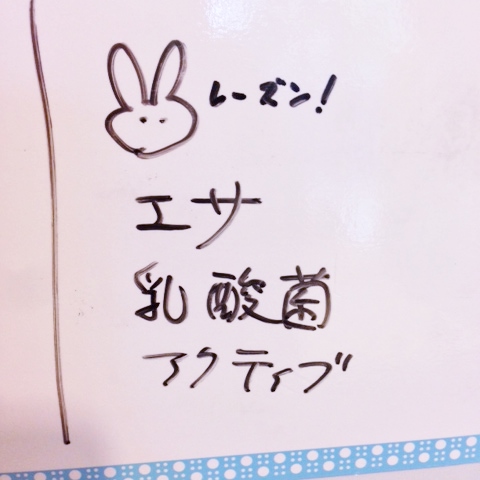 レーズン!
エサ
乳酸菌
アクティブ